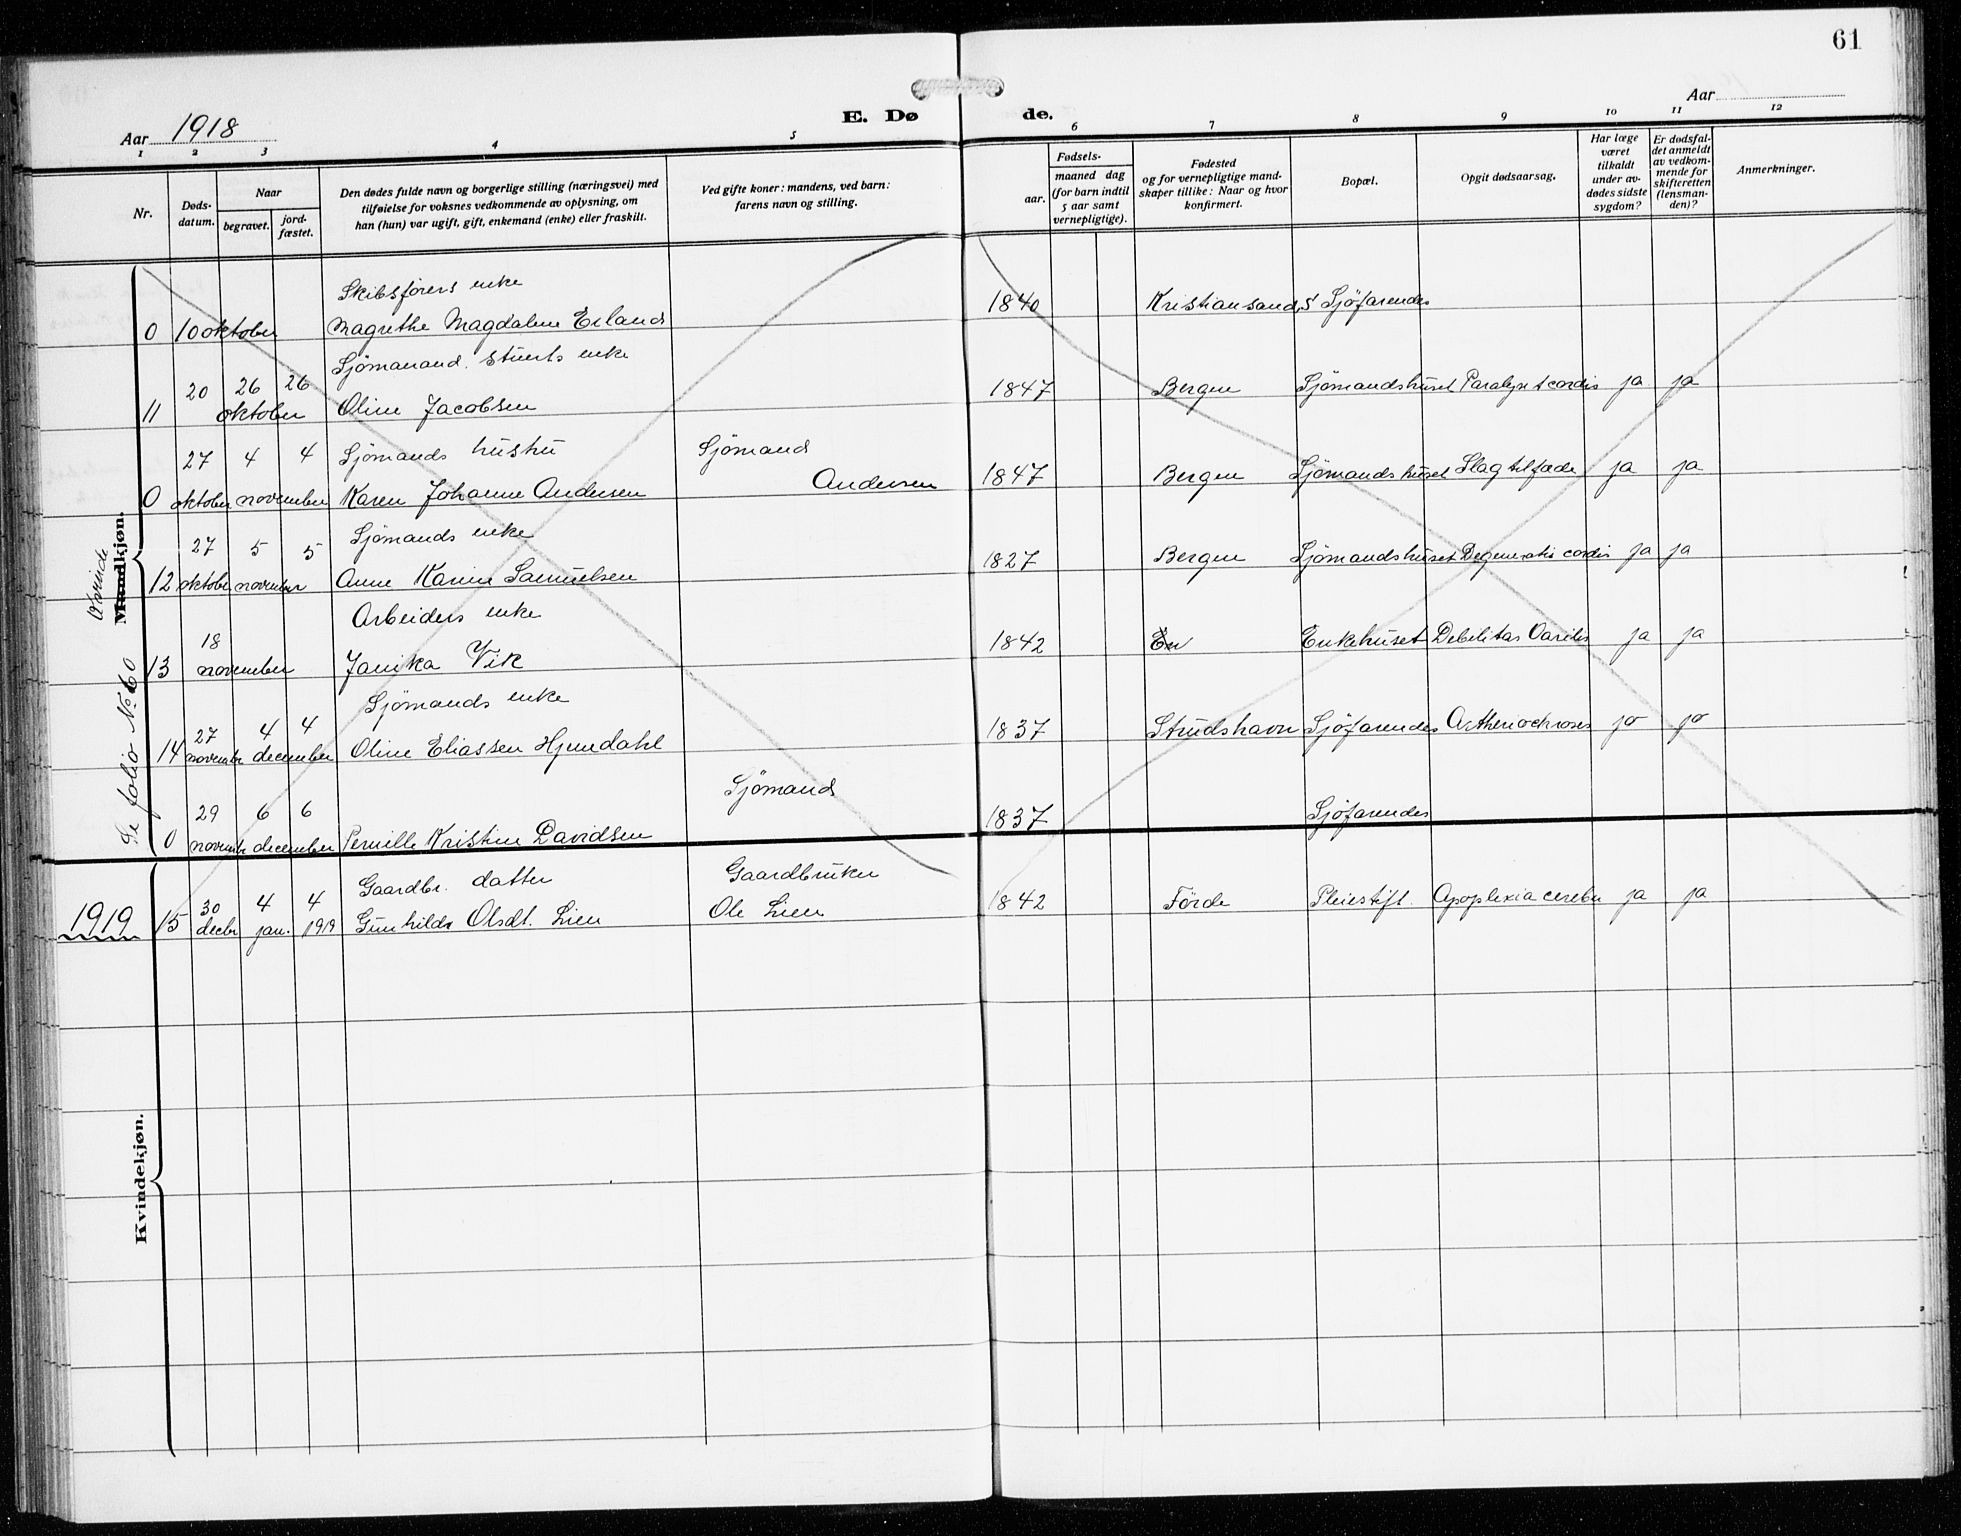 61
Aar 1918
E. Dø
de.
Aar
1 2 3 4 5 6 7 8 9 10 11 12
Nr.
Døds-
datum.
Naar
begravet.
jord-
fæstet.
Den dødes fulde navn og borgerlige stilling (næringsvei) med
tilføielse for voksnes vedkommende av oplysning, om
han (hun) var ugift, gift, enkemand (enke) eller fraskilt.
Ved gifte koner: mandens, ved barn:
farens navn og stilling.
aar.
Fødsels-
maaned dag
(for barn indtil
5 aar samt
vernepligtige).
Fødested
og for vernepligtige mand-
skaper tillike: Naar og hvor
konfirmert.
Bopæl.
Opgit dødsaarsag.
Har læge
været
tilkaldt
under av-
dødes sidste
sygdom?
Er dødsfal-
det anmeldt
av vedkom-
mende for
skifteretten
(lensman-
den)?
Anmerkninger.
Kvinde
Mandkjøn.
Se folio No 60
Skibsførers enke
0 10 oktober Magrethe Magdalene Erland 1840 Kristiansand S Sjøfarendes
Sjømanand. Stuerts enke
11 20 26 26 oktober Oline Jacobsen 1847 Bergen Sjømandshuset Paralyse cordis ja ja
27 4 4 Sjømands hustru Sjømand
0 oktober november Karen Johanne Andersen Andersen 1847 Bergen Sjømandshuset Slagtilfæde ja ja
27 5 5 Sjømands enke
12 oktober november Anne Karine Samuelsen 1827 Bergen Sjømandshuset Degeneratio cordis ja ja
18 Arbeiders enke
13 november Janika Vik 1842 Enkehuset Debilitas ja ja
27 4 4 Sjømands enke
14 november december Oline Eliassen Hjemdahl 1837 Strudshavn Sjøfarendes ja ja
29 6 6 Sjømand
0 november december Pernille Kristine Davidsen 1837 Sjøfarendes
30 4 4 Gaardbr. datter Gaardbruker
1919 15 decbr jan. 1919 Gunhilda Olsdt. Lien Ole Lien 1842 Førde Pleiestift. Apoplexia cerebri ja ja
Kvindekjøn.